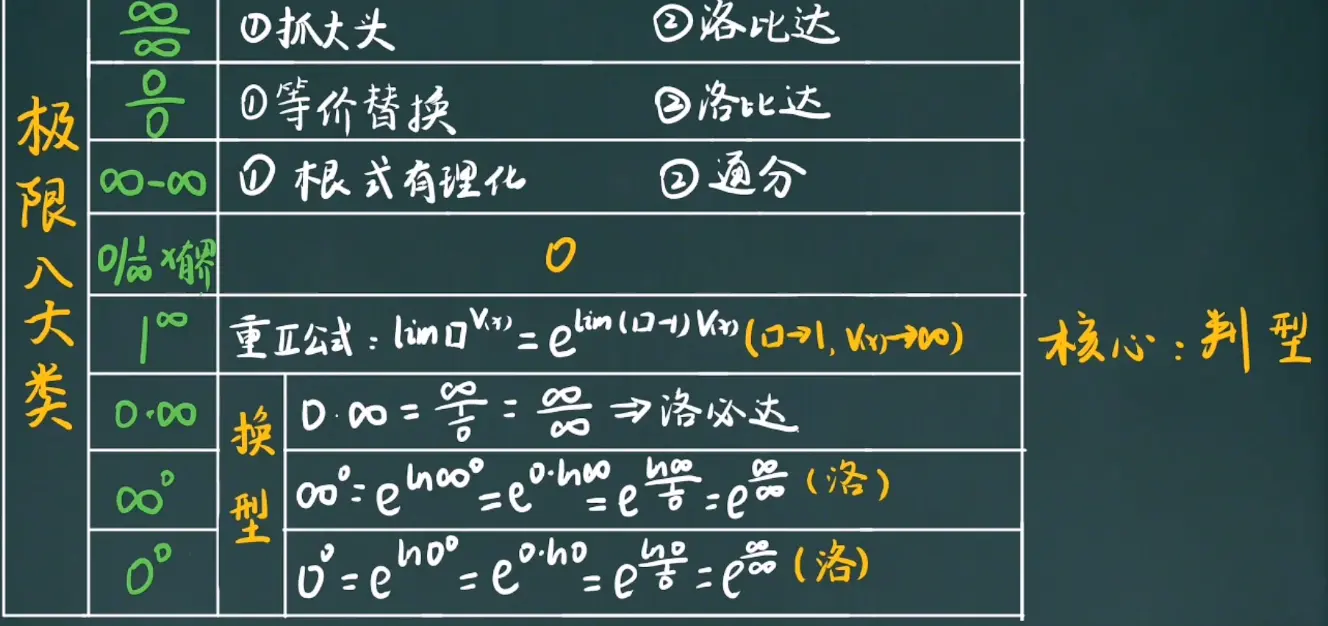 极限八大类
∞/∞ ①抓大头 ②洛比达
0/0 ①等价替换 ②洛比达
∞-∞ ①根式有理化 ②通分
0/(1/∞)×有界 0
1^∞ 重Ⅱ公式:lim□^V(x)=e^lim(□-1)V(x)(□→1,V(x)→∞)
核心:判型
换型
0·∞ 0·∞=∞/(1/0)=∞/∞⇒洛必达
∞^0 ∞^0=e^ln∞^0=e^0·ln∞=e^(ln∞/(1/0))=e^(∞/∞)(洛)
0^0 0^0=e^ln0^0=e^0·ln0=e^(ln0/(1/0))=e^(∞/∞)(洛)